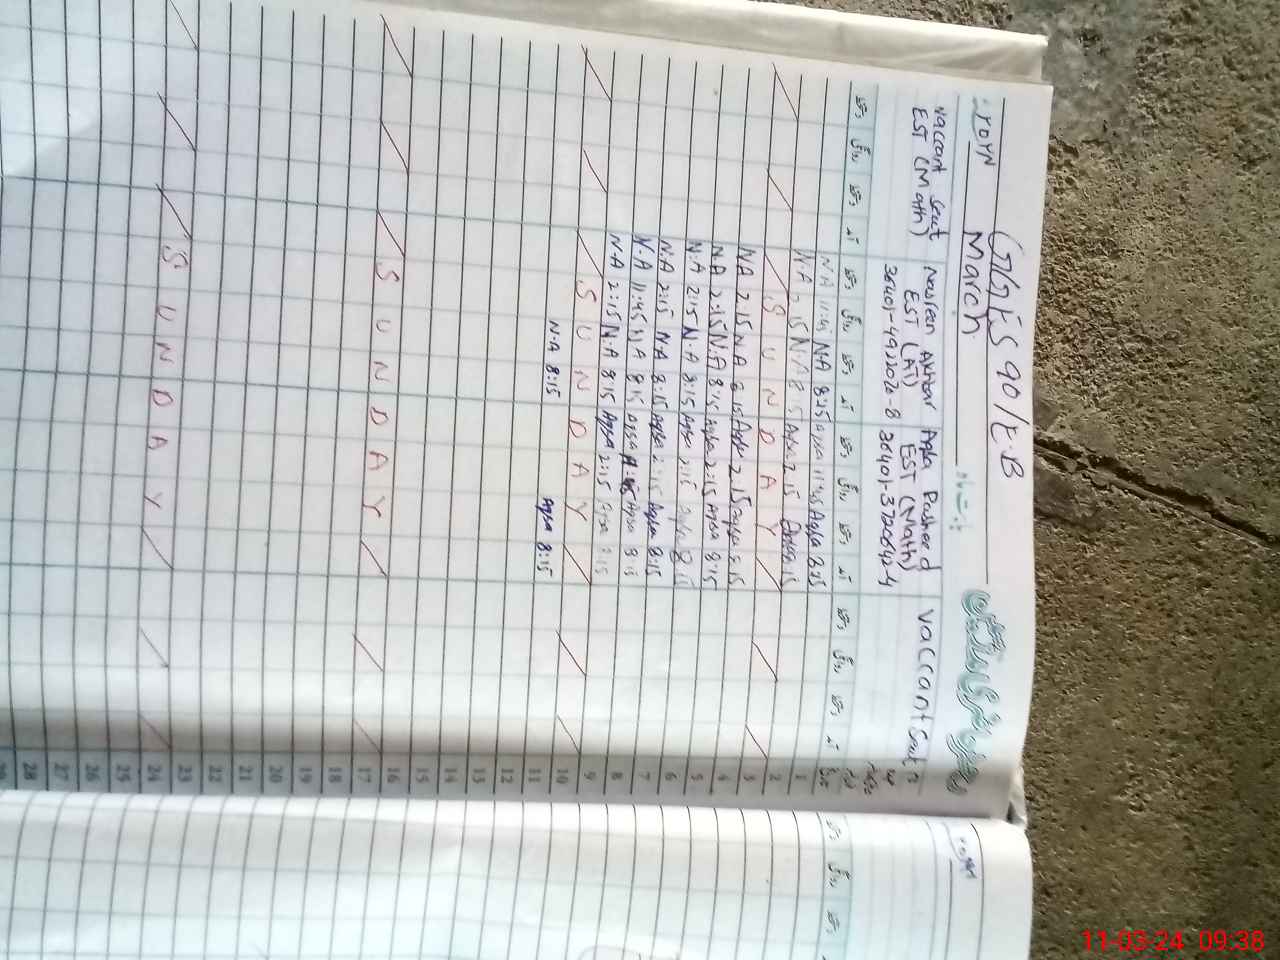 GGES 90/E.B
March
Vaccant Seat
EST (Math)
Nasreen Akhtar
EST (AT)
Aqsa Rasheed
EST (Math)
Vaccant Seat
1 N.A 11:45 N.A 8:15 Aqsa 11:45 Aqsa 8:15
2 N.A 2:15 N.A 8:15 Aqsa 2:15 Aqsa 8:15
3 SUNDAY
4 N.A 2:15 N.A 8:15 Aqsa 2:15 Aqsa 8:15
5 N.A 2:15 N.A 8:15 Aqsa 2:15 Aqsa 8:15
6 N.A 2:15 N.A 8:15 Aqsa 2:15 Aqsa 8:15
7 N.A 2:15 N.A 8:15 Aqsa 2:15 Aqsa 8:15
8 N.A 11:45 N.A 8:15 Aqsa 11:45 Aqsa 8:15
9 N.A 2:15 N.A 8:15 Aqsa 2:15 Aqsa 8:15
10 SUNDAY
11 N.A 8:15 Aqsa 8:15
12
13
14
15
16
17 SUNDAY
18
19
20
21
22
23
24 SUNDAY
25
26
27
28
11-03-24 09:38